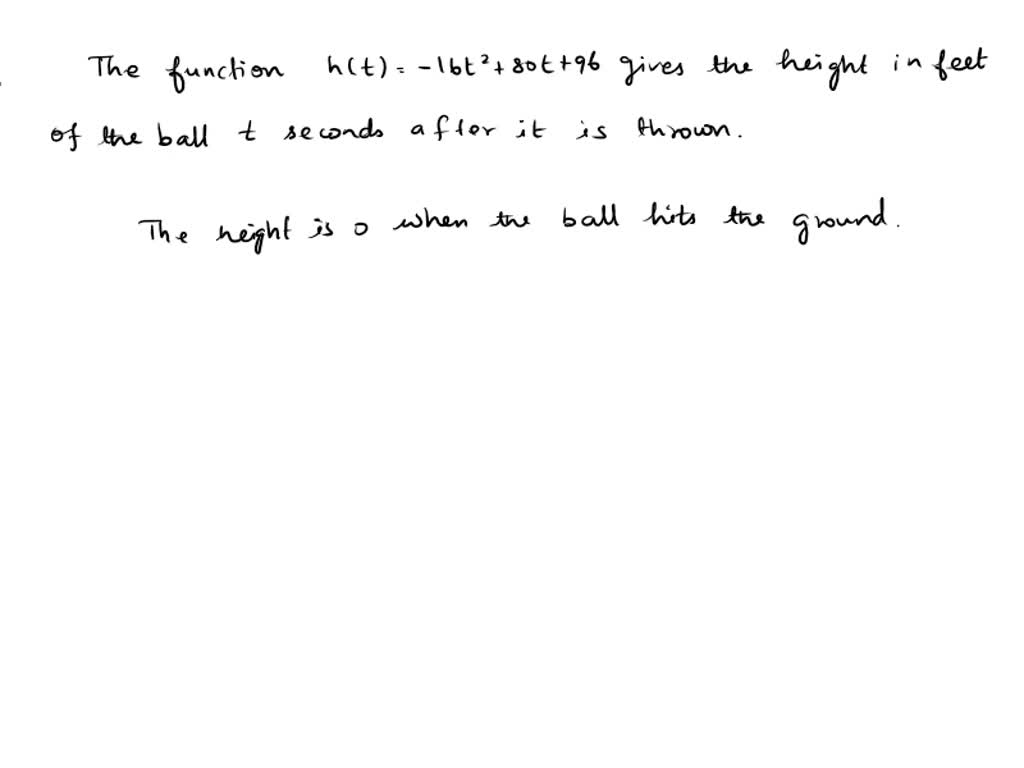 The function h(t) = -16t²+80t+96 gives the height in feet
of the ball t seconds after it is thrown.
The height is 0 when the ball hits the ground.